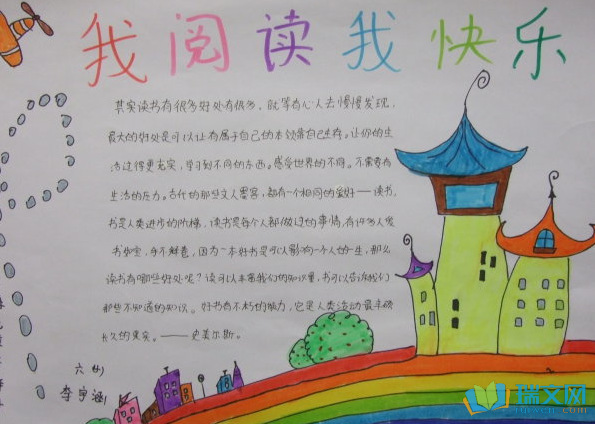 我阅读我快乐
其实读书有很多好处有很多，就等有心人去慢慢发现，
最大的好处是可以让有属于自己的本领靠自己生存。让你的生
活过得更充实，学习到不同的东西。感受世界的不同。不需要有
生活的压力。古代的那些文人墨客，都有个相同的爱好——读书，
书是人类进步的阶梯，读书是每个人都做过的事情，有许多人爱
书如宝，手不释卷，因为一本好书是可以影响一个人的一生，那么
读书有哪些好处呢？读可以丰富我们的知识量，书可以告诉我们
那些不知道的知识。好书有不朽的能力，它是人类活动最丰硕
长久的果实。——史美尔斯。
六
李宇涵
瑞文网